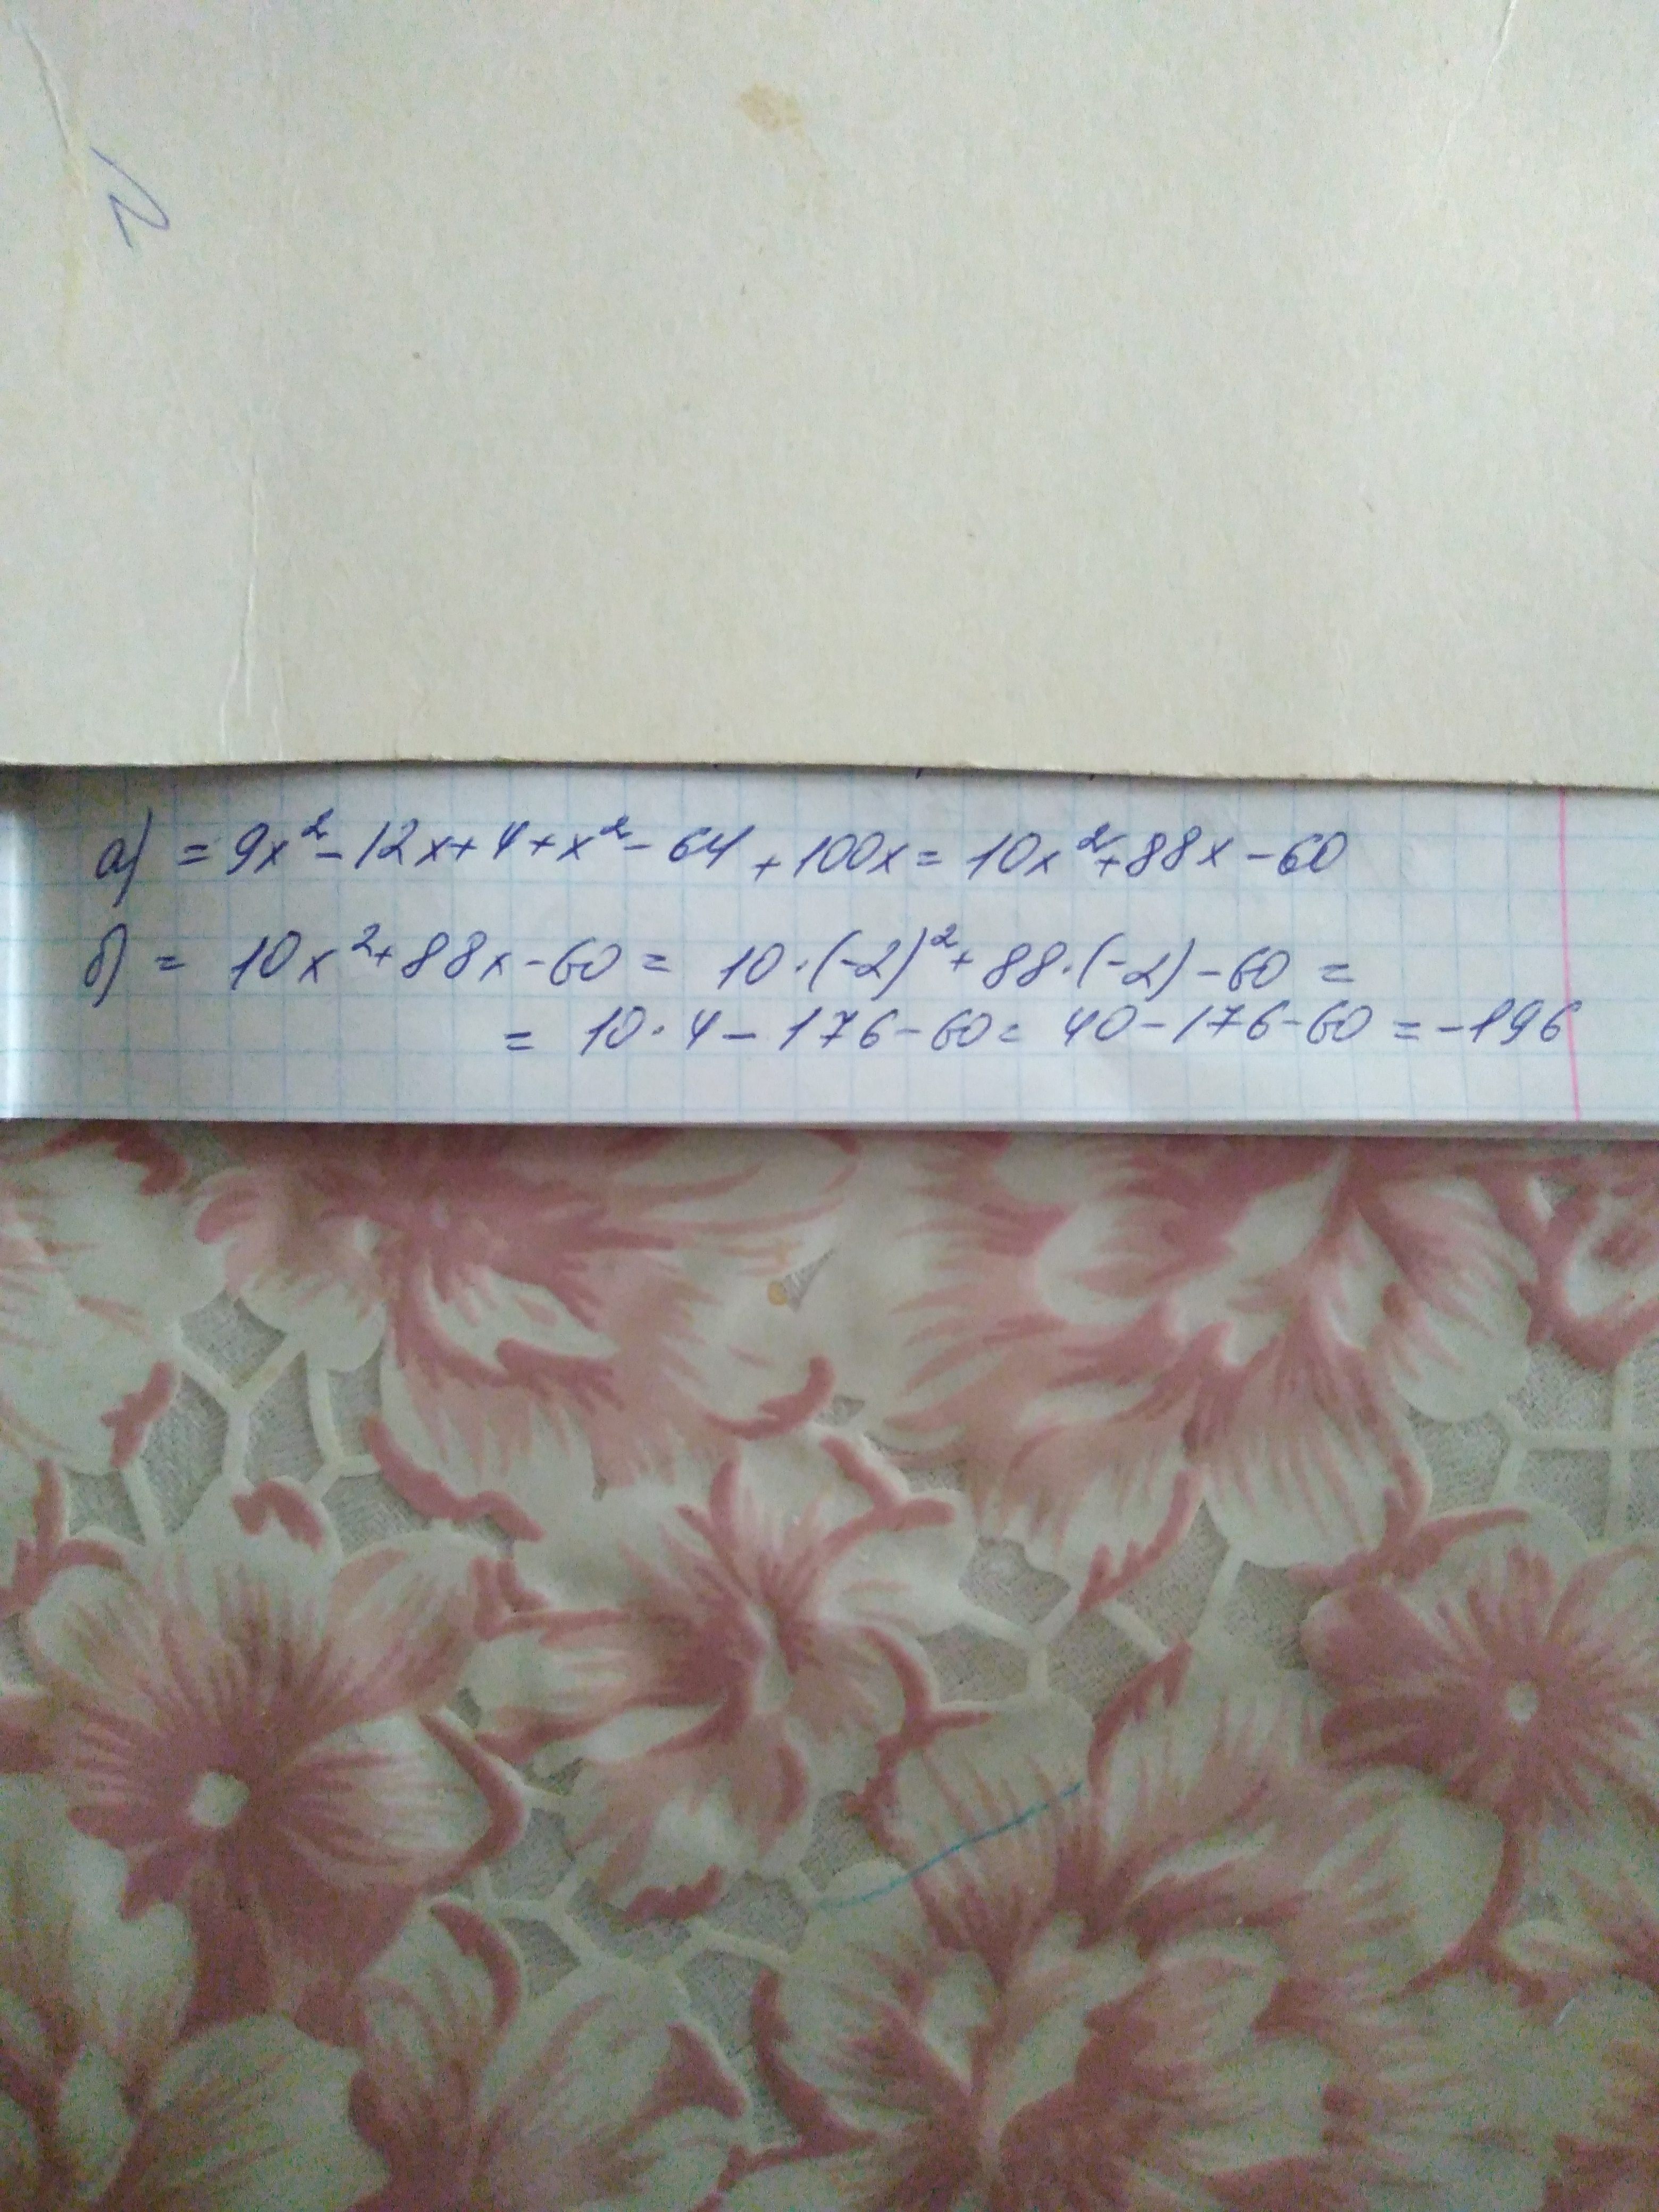 а) = 9x² - 12x + 4 + x² - 64 + 100x = 10x² + 88x - 60
б) = 10x² + 88x - 60 = 10 · (-2)² + 88 · (-2) - 60 =
= 10 · 4 - 176 - 60 = 40 - 176 - 60 = -196